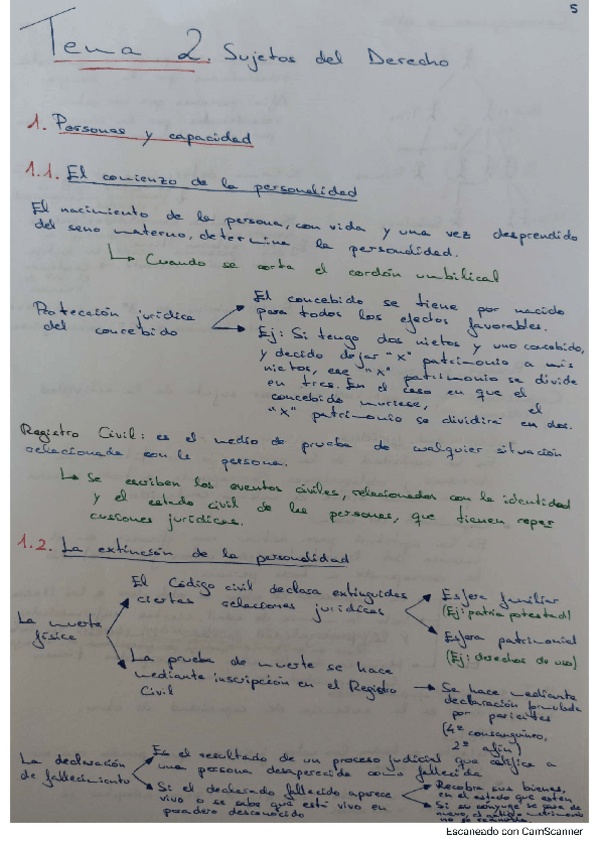 5
Tema 2. Sujetos del Derecho
1. Personas y capacidad
1.1. El comienzo de la personalidad
El nacimiento de la persona, con vida y una vez desprendido
del seno materno, determina la personalidad.
↳ Cuando se corta el cordón umbilical
Protección jurídica
del concebido
El concebido se tiene por nacido
para todos los efectos favorables.
Ej: Si tengo dos nietos y uno concebido,
y decido dejar "X" patrimonio a mis
nietos, ese "X" patrimonio se divide
en tres. En el caso en que el
concebido muriese, el
"X" patrimonio se dividirá en dos.
Registro Civil: es el medio de prueba de cualquier situación
relacionada con la persona.
↳ Se escriben los eventos civiles, relacionados con la identidad
y el estado civil de las personas, que tienen reper
cusiones jurídicas.
1.2. La extinción de la personalidad
La muerte
física
El Código civil declara extinguidas
ciertas relaciones jurídicas
Esfera familiar
(Ej: patria potestad)
Esfera patrimonial
(Ej: derechos de uso)
La prueba de muerte se hace
mediante inscripción en el Registro
Civil
Se hace mediante
declaración formulada
por parientes
(4º consanguíneo,
2º afín)
La declaración
de fallecimiento
Es el resultado de un proceso judicial que califica a
una persona desaparecida como fallecida
Si el declarado fallecido aparece
vivo o se sabe que está vivo en
paradero desconocido
Recobra sus bienes,
en el estado que estén
Si su cónyuge se casa de
nuevo, el antiguo matrimonio
no se
Escaneado con CamScanner